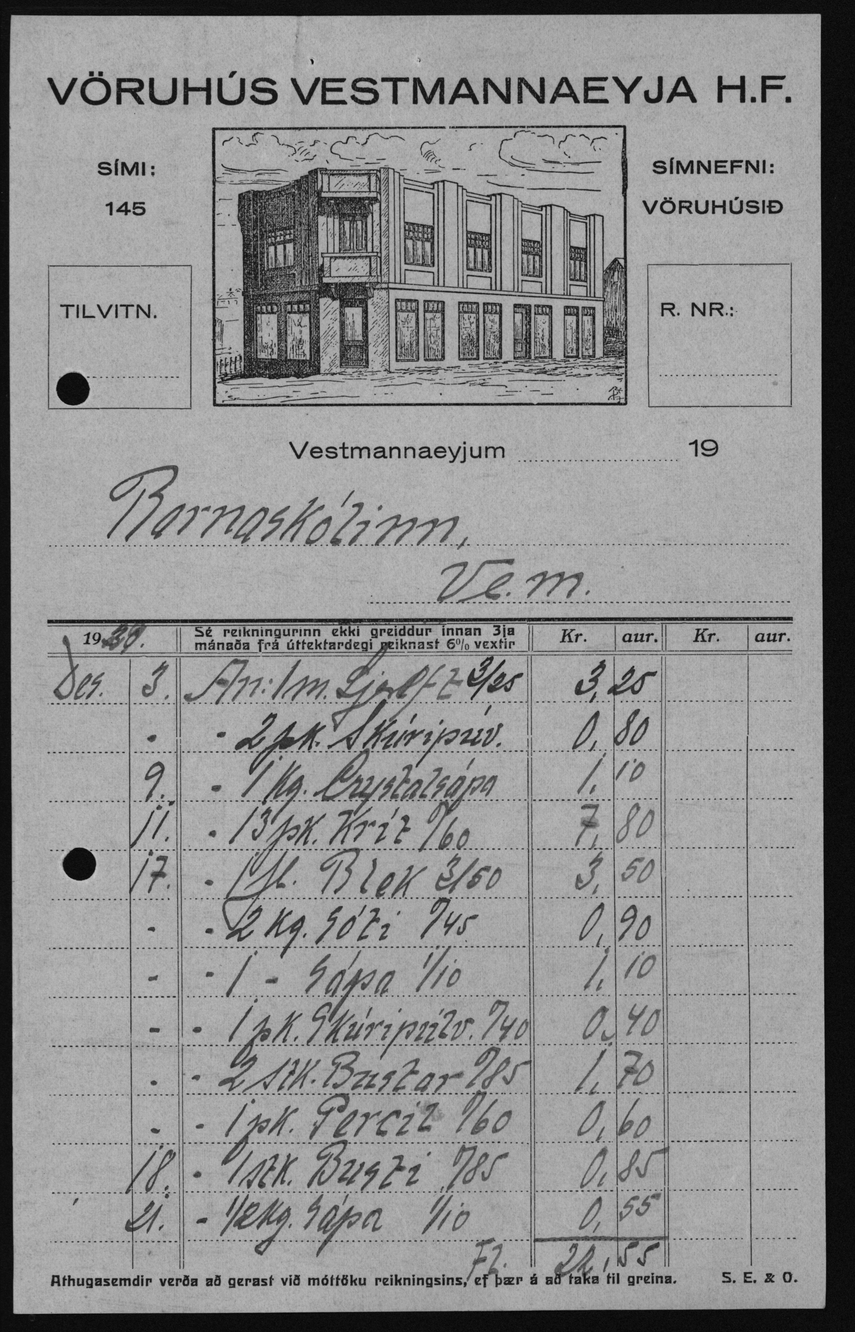 VÖRUHÚS VESTMANNAEYJA H.F.
SÍMI:
145
SÍMNEFNI:
VÖRUHÚSIÐ
TILVITN.
R. NR.:
Vestmannaeyjum 19
Barnaskólinn,
Ve.m.
19 Sé reikningurinn ekki greiddur innan 3ja Kr. aur. Kr. aur.
mánaða frá úttektardegi reiknast 6% vextir
Des. 3. An: 1 m. 3/25 3,25
- - 2 pk. Skúripúlv. 0,80
9. - 1 Kg. Crystalsápa 1,10
11. - 13 pk. Krít "/60 7,80
17. - 1 fl. Blek 3/50 3,50
- - 2 Kg. Sóti "/45 0,90
- - 1 - Sápa 1/10 1,10
- - 1 pk. Skúripúlv. "/40 0,40
- - 2 stk. Bustar "/85 1,70
- - 1 pk. Percil "/60 0,60
18. - 1 stk. Busti "/85 0,85
21. - 1/2 kg. Sápa 1/10 0,55
Fl. 22,55
Athugasemdir verða að gerast við móttöku reikningsins, ef þær á að taka til greina. S. E. & O.